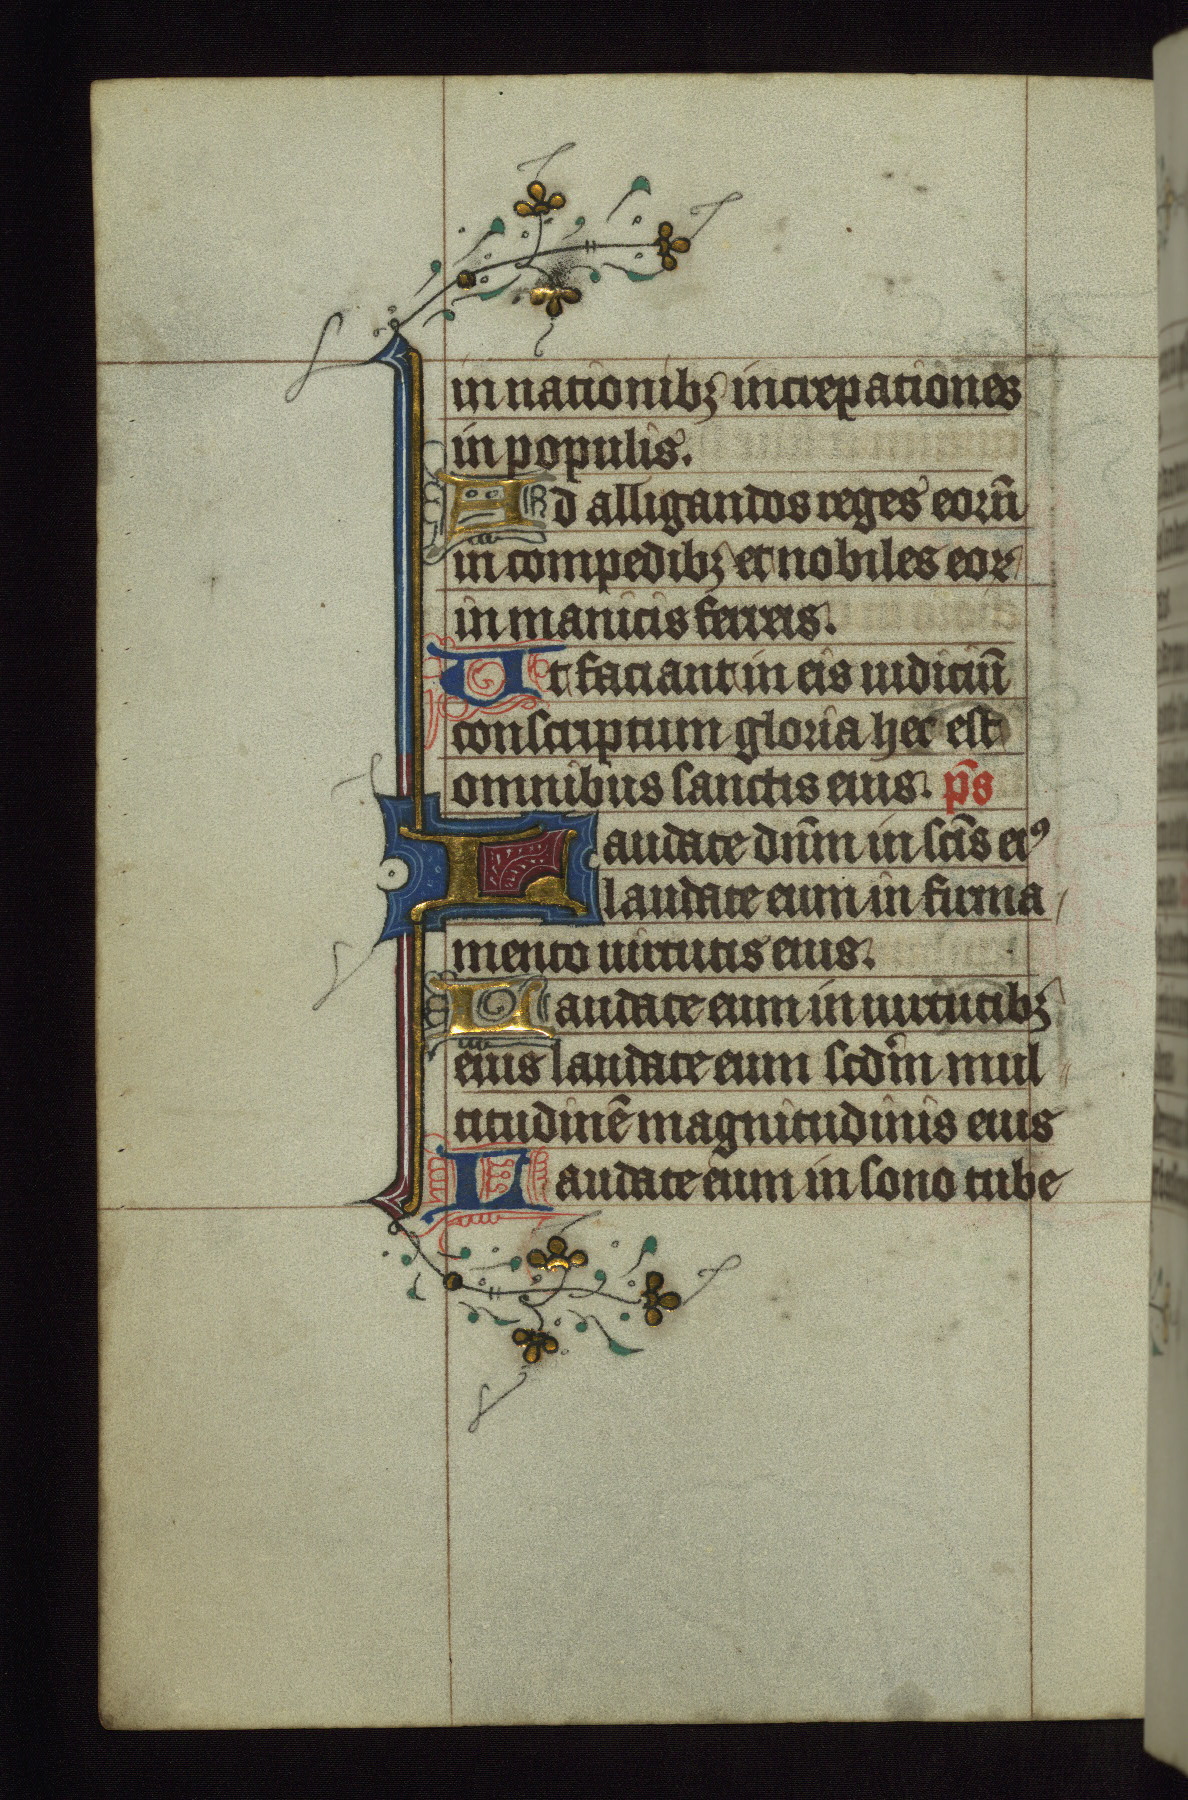 in nationibꝫ increpationes
in populis.
Ad alligandos reges eorū
in compedibꝫ et nobiles eoꝝ
in manicis ferreis.
Ut faciant in eis iudiciū
conscriptum gloria hec est
omnibus sanctis eius. p̄s
Laudate dn̄m in sc̄is eiꝰ
laudate eum in firma
mento uirtutis eius.
Laudate eum in uirtutibꝫ
eius laudate eum scd̄m mul
titudinē magnitudinis eius
Laudate eum in sono tube